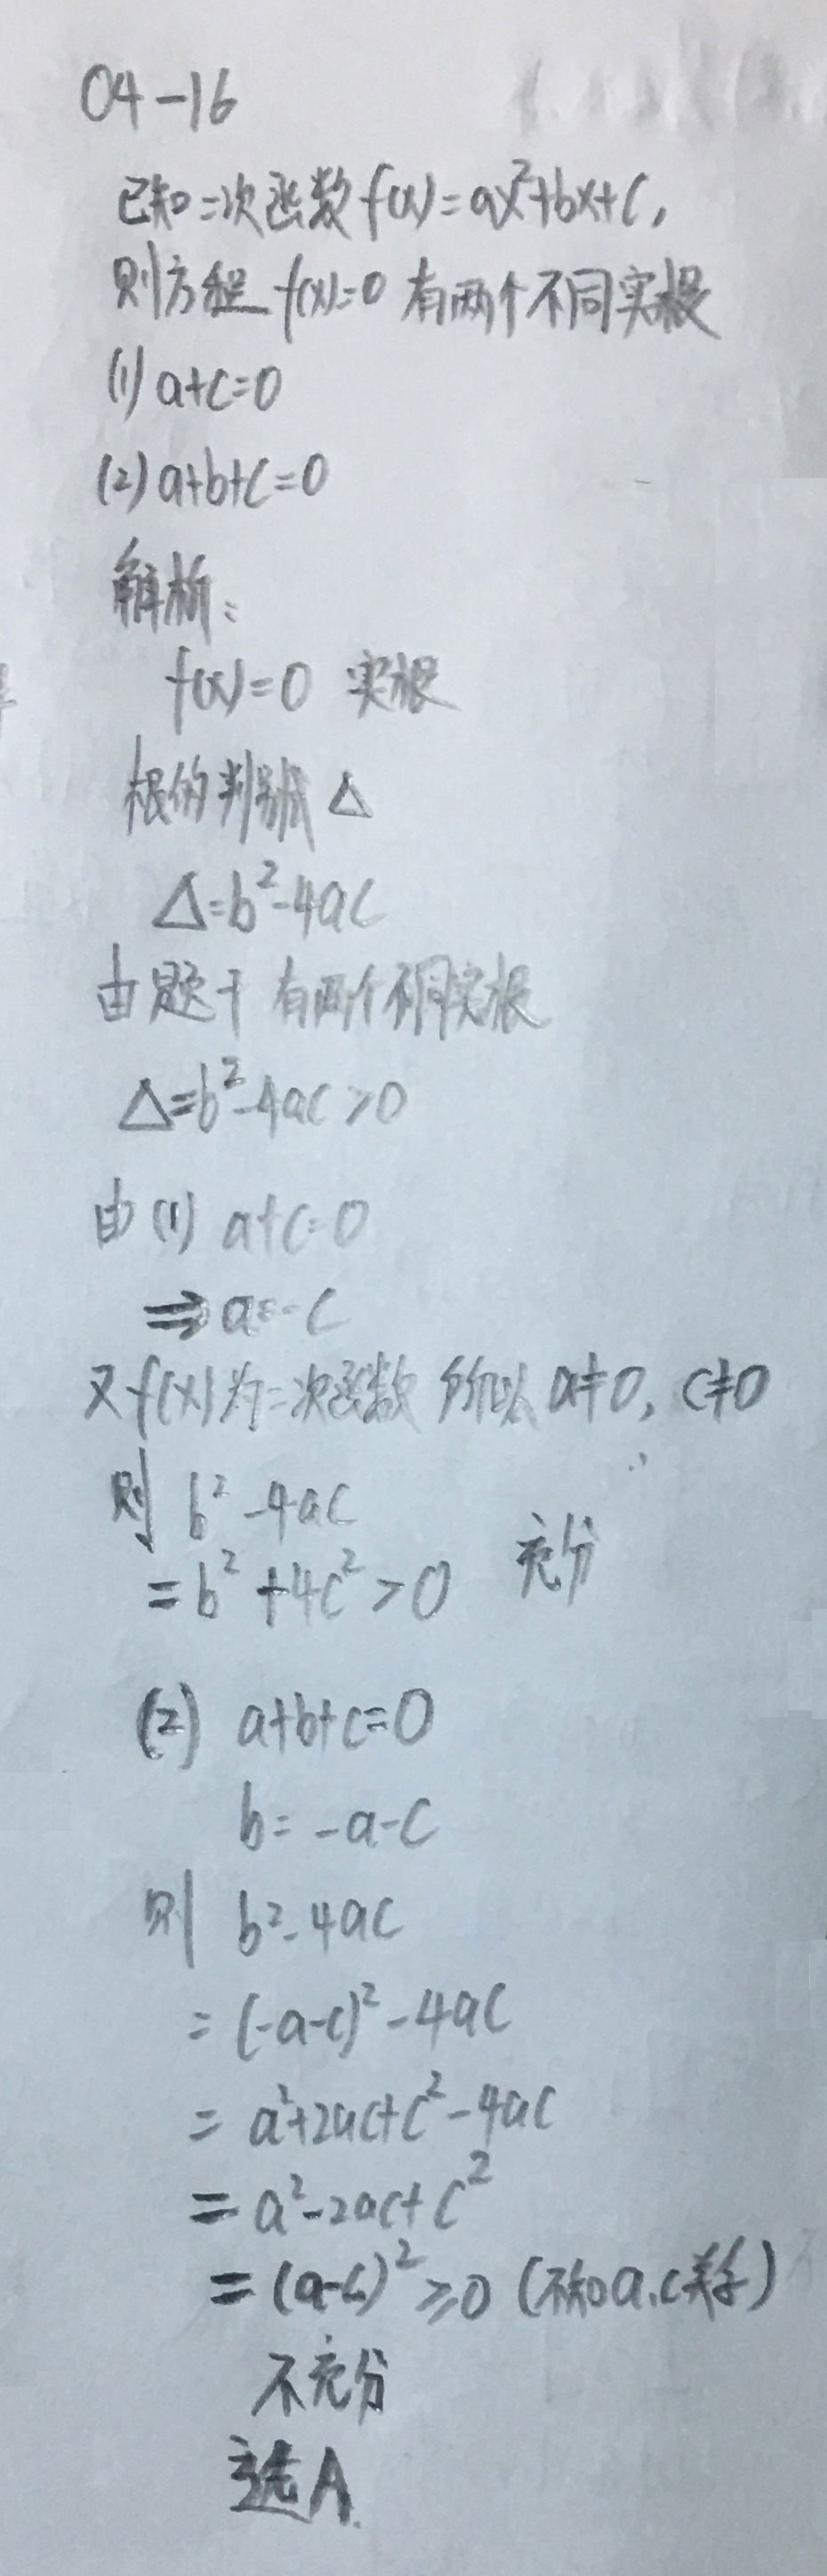 04-16
已知二次函数f(x)=ax²+bx+c,
则方程f(x)=0 有两个不同实根
(1) a+c=0
(2) a+b+c=0
解析:
f(x)=0 实根
根的判别式 △
△=b²-4ac
由题干 有两个不同实根
△=b²-4ac>0
由 (1) a+c=0
⇒ a=-c
又f(x)为二次函数 所以 a≠0, c≠0
则 b²-4ac
=b²+4c²>0 充分
(2) a+b+c=0
b=-a-c
则 b²-4ac
=(-a-c)²-4ac
=a²+2ac+c²-4ac
=a²-2ac+c²
=(a-c)²≥0 (不知a.c关系)
不充分
选A.